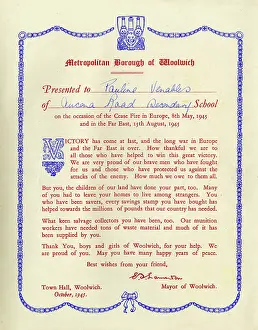 Metropolitan Borough of Woolwich
Presented to Pauline Venables
of Ancona Road Secondary School
on the occasion of the Cease Fire in Europe, 8th May, 1945
and in the Far East, 15th August, 1945
VICTORY has come at last, and the long war in Europe
and the Far East is over. How thankful we are to all
those who have helped to win this great victory.
We are very proud of our brave men who have fought for
us and of those who have protected us against the
attacks of the enemy. How much we owe to them all.
But you, the children of our land have done your part, too. Many
of you had to leave your homes to live among strangers. You
who have been savers, every savings stamp you have bought has
helped towards the millions of pounds that our country has needed.
What keen salvage collectors you have been, too. Our munition
workers have needed tons of waste material and much of it has
been supplied by your efforts.
Thank You, boys and girls of Woolwich, for your help. We are
proud of you. May you have many happy years of peace.
Best wishes from your friend,
Town Hall, Woolwich. Mayor of Woolwich.
October, 1945.